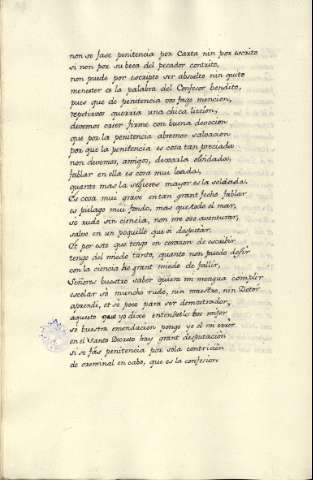 non se fase penitencia por Carta nin por escrito
si non por su boca del pecador contrito,
non puede por escripto ser absuelto nin quito
menester es la palabra del Confesor bendito,
pues que de penitencia vos fago mencion,
repetirvos querria una chica licion,
devemos creer firme con buena devocion
que por la penitencia abremos salvacion
por que la penitencia es cosa tan preciada
non devemos, amigos, dexarla olvidada,
fablar en ella es cosa mui loada,
quanto mas la
mayor es la soldada.
Es cosa mui grave en tan grant fecho fablar
es pielago mui fondo, mas que todo el mar,
so rudo sin ciencia, non me oso aventurar,
salvo en un poquillo que oi despertar.
Et por esto que tengo en corazon de escribir
tengo del miedo tanto, quanto non puedo desir
con la ciencia he grant miedo de fallir,
Señores buestro saber quiera mi mengua complir
escolar só mucho rudo, nin maestro, nin Dotor
aprendi, et sé poco para ser demostrador,
aquesto que yo dixe entendetlo bos mejor
só buestra emendacion pongo yo el mi error
en el Santo Decreto hay grant desputacion
si se fás penitencia por sola contricion
de
en cabo, que es la confesion